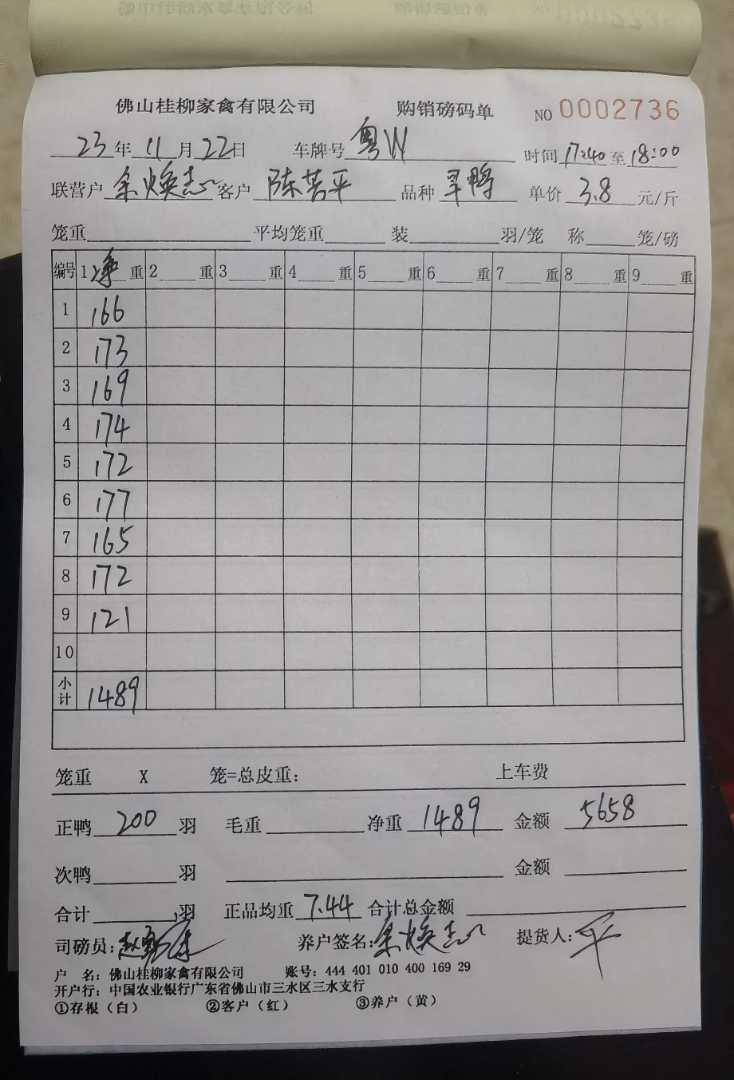 佛山桂柳家禽有限公司 购销磅码单 NO 0002736
23年11月22日 车牌号 粤W 时间 17:40 至 18:00
联营户 余焕志 客户 陈苦平 品种 旱鸭 单价 3.8 元/斤
笼重 平均笼重 装 羽/笼 称 笼/磅
编号 1 净 重 2 重 3 重 4 重 5 重 6 重 7 重 8 重 9 重
1 166
2 173
3 169
4 174
5 172
6 177
7 165
8 172
9 121
10
小计 1489
笼重 X 笼=总皮重: 上车费
正鸭 200 羽 毛重 净重 1489 金额 5658
次鸭 羽 金额
合计 羽 正品均重 7.44 合计总金额
司磅员: 养户签名: 余焕志 提货人: 平
户 名: 佛山桂柳家禽有限公司 账号: 444 401 010 400 169 29
开户行: 中国农业银行广东省佛山市三水区三水支行
①存根（白） ②客户（红） ③养户（黄）